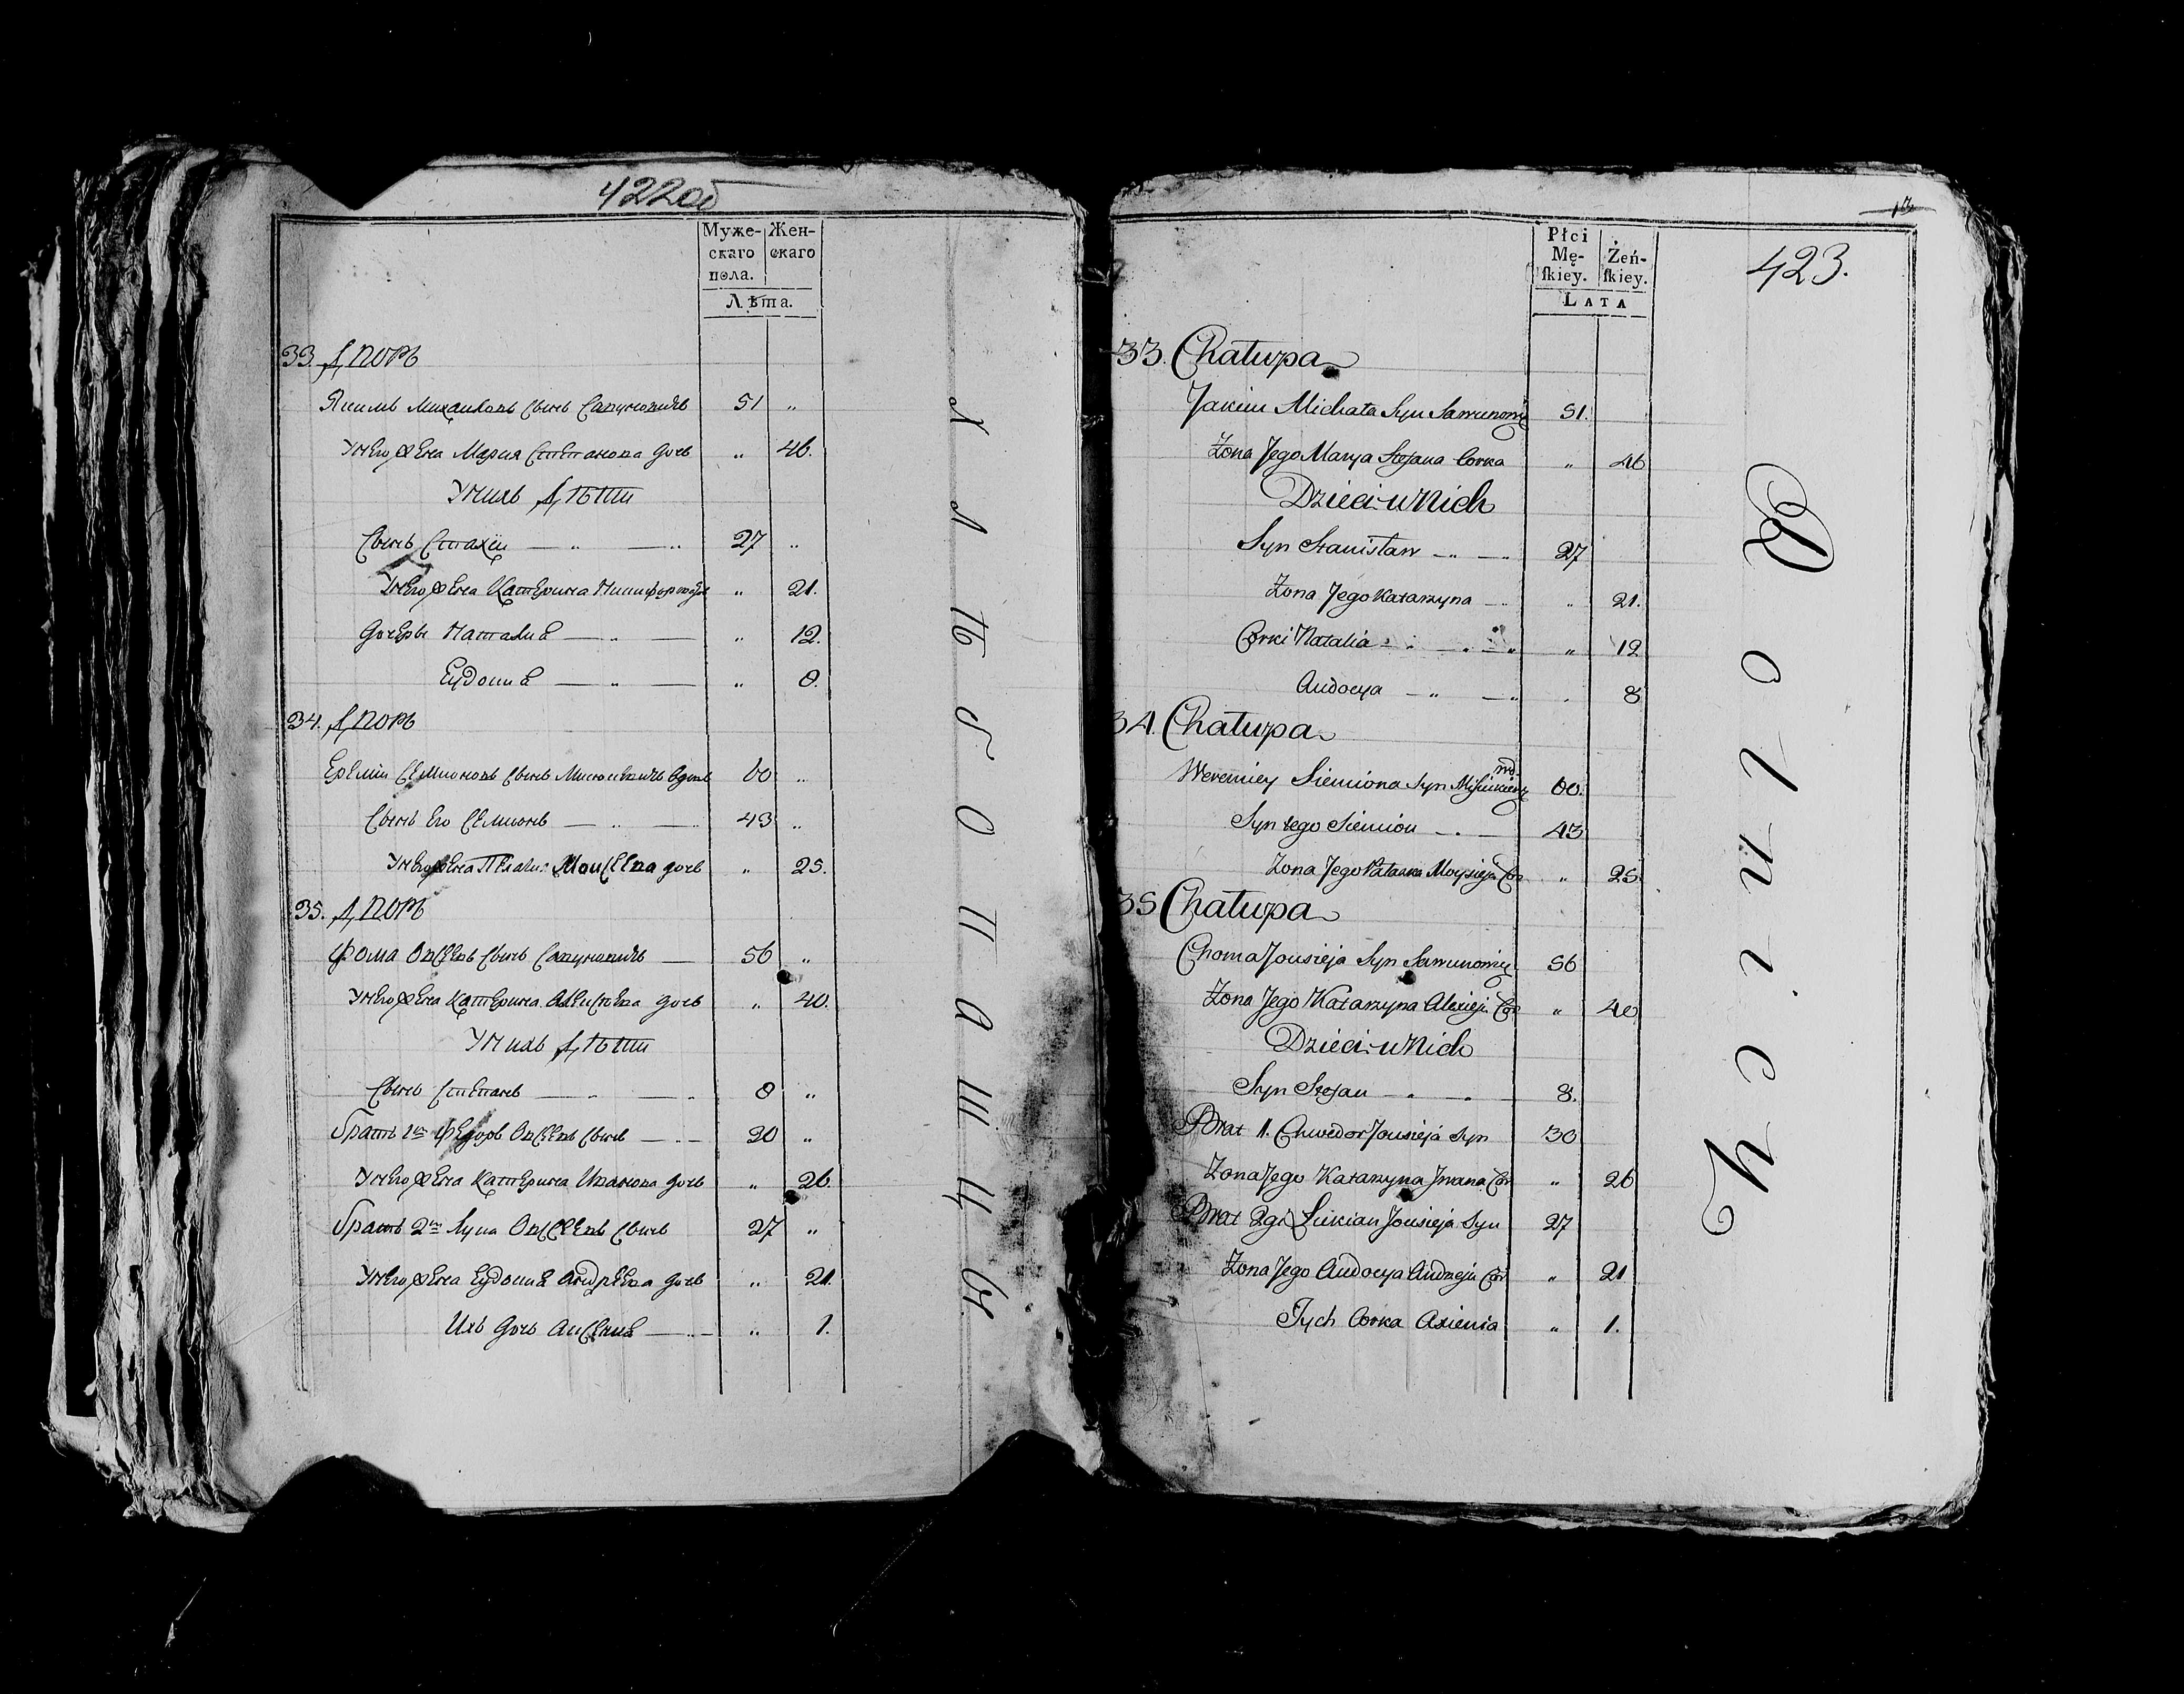 422об
Муже-
скаго
пола.
Жен-
скаго
Лѣта.
33. Дворъ
Якимъ Михайловъ сынъ Савуновичъ 51 "
У него жена Мария Степанова дочь " 46.
У нихъ дѣти
Сынъ Стахій — " — " 27 "
У него жена Катерина Никифорова " 21.
Дочери Наталия — " — " 12.
Еудокия — " — " 8.
34. Дворъ
Еремій Семионовъ сынъ Мисюкевичъ вдовъ 60 "
Сынъ его Семионъ — " — 43 "
У него жена Пелагия Моисеева дочь " 25.
35. Дворъ
Фома Овсеевъ сынъ Савуновичъ — 56 "
У него жена Катерина Алексеева дочь " 40.
У нихъ дѣти
Сынъ Степанъ — " — 8 "
Братъ 1й Федоръ Овсеевъ сынъ — " — 30 "
У него жена Катерина Иванова дочь " 26.
Братъ 2й Лука Овсеевъ сынъ 27 "
У него жена Еудокия Андреева дочь " 21.
Ихъ дочь Аксения — " — " 1.
Хлѣбопашцы
13
423.
Płci
Mę-
ſkiey.
Żeń-
ſkiey.
LATA
33. Chałupa
Jakim Michała Syn Sawunowicz 51.
Żona Jego Marya Stefana Corka " 46
Dzieci u Nich
Syn Stanisław — " — 27
Żona Jego Katarzyna — " 21.
Corki Natalia — " — " 12
Audocya — " — " 8
34. Chałupa
Weremiey Siemiona Syn Misiukiewicz wd. 60.
Syn tego Siemion — " — 43
Żona Jego Moysieja Cor " 25
35 Chałupa
Choma Jousieja Syn Sawunowicz 56
Żona Jego Katarzyna Alexieja Cor " 40
Dzieci u Nich
Syn Stefan — " — 8.
Brat 1. Chwedor Jousieja Syn 30
Żona Jego Katarzyna Jwana Cor " 26
Brat 2gi Łukian Jousieja Syn 27
Żona Jego Audocya Andrzeja Cor " 21
Tych Corka Axienia " 1.
Rolnicy